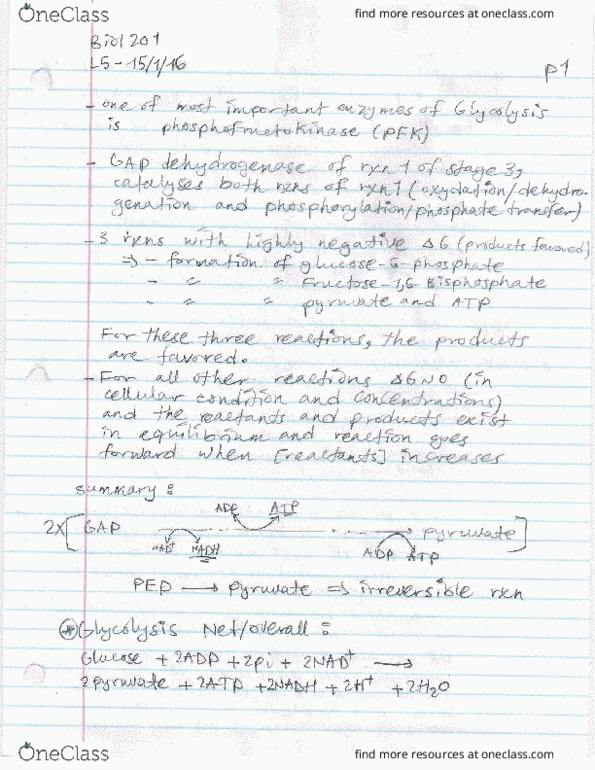 OneClass
find more resources at oneclass.com
Biol 201
L5 - 15/1/16
P1
- one of most important enzymes of Glycolysis
is phosphofructokinase (PFK)
- GAP dehydrogenase of rxn 1 of stage 3,
catalyses both rxns of rxn 1 (oxydation/dehydro-
genation and phosphorylation/phosphate transfer)
- 3 rxns with highly negative ΔG (products favored)
⇒ - formation of glucose-6-phosphate
- " " Fructose-1,6-Bisphosphate
- " " pyruvate and ATP
For these three reactions, the products
are favored.
- For all other reactions ΔG~0 (in
cellular condition and concentrations)
and the reactants and products exist
in equilibrium and reaction goes
forward when [reactants] increases
summary :
ADP ATP
2x [GAP → pyruvate]
NAD+ NADH ADP ATP
PEP → pyruvate ⇒ irreversible rxn
* Glycolysis Net/overall :
Glucose + 2ADP + 2pi + 2NAD+ →
2pyruvate + 2ATP + 2NADH + 2H+ + 2H2O
OneClass
find more resources at oneclass.com